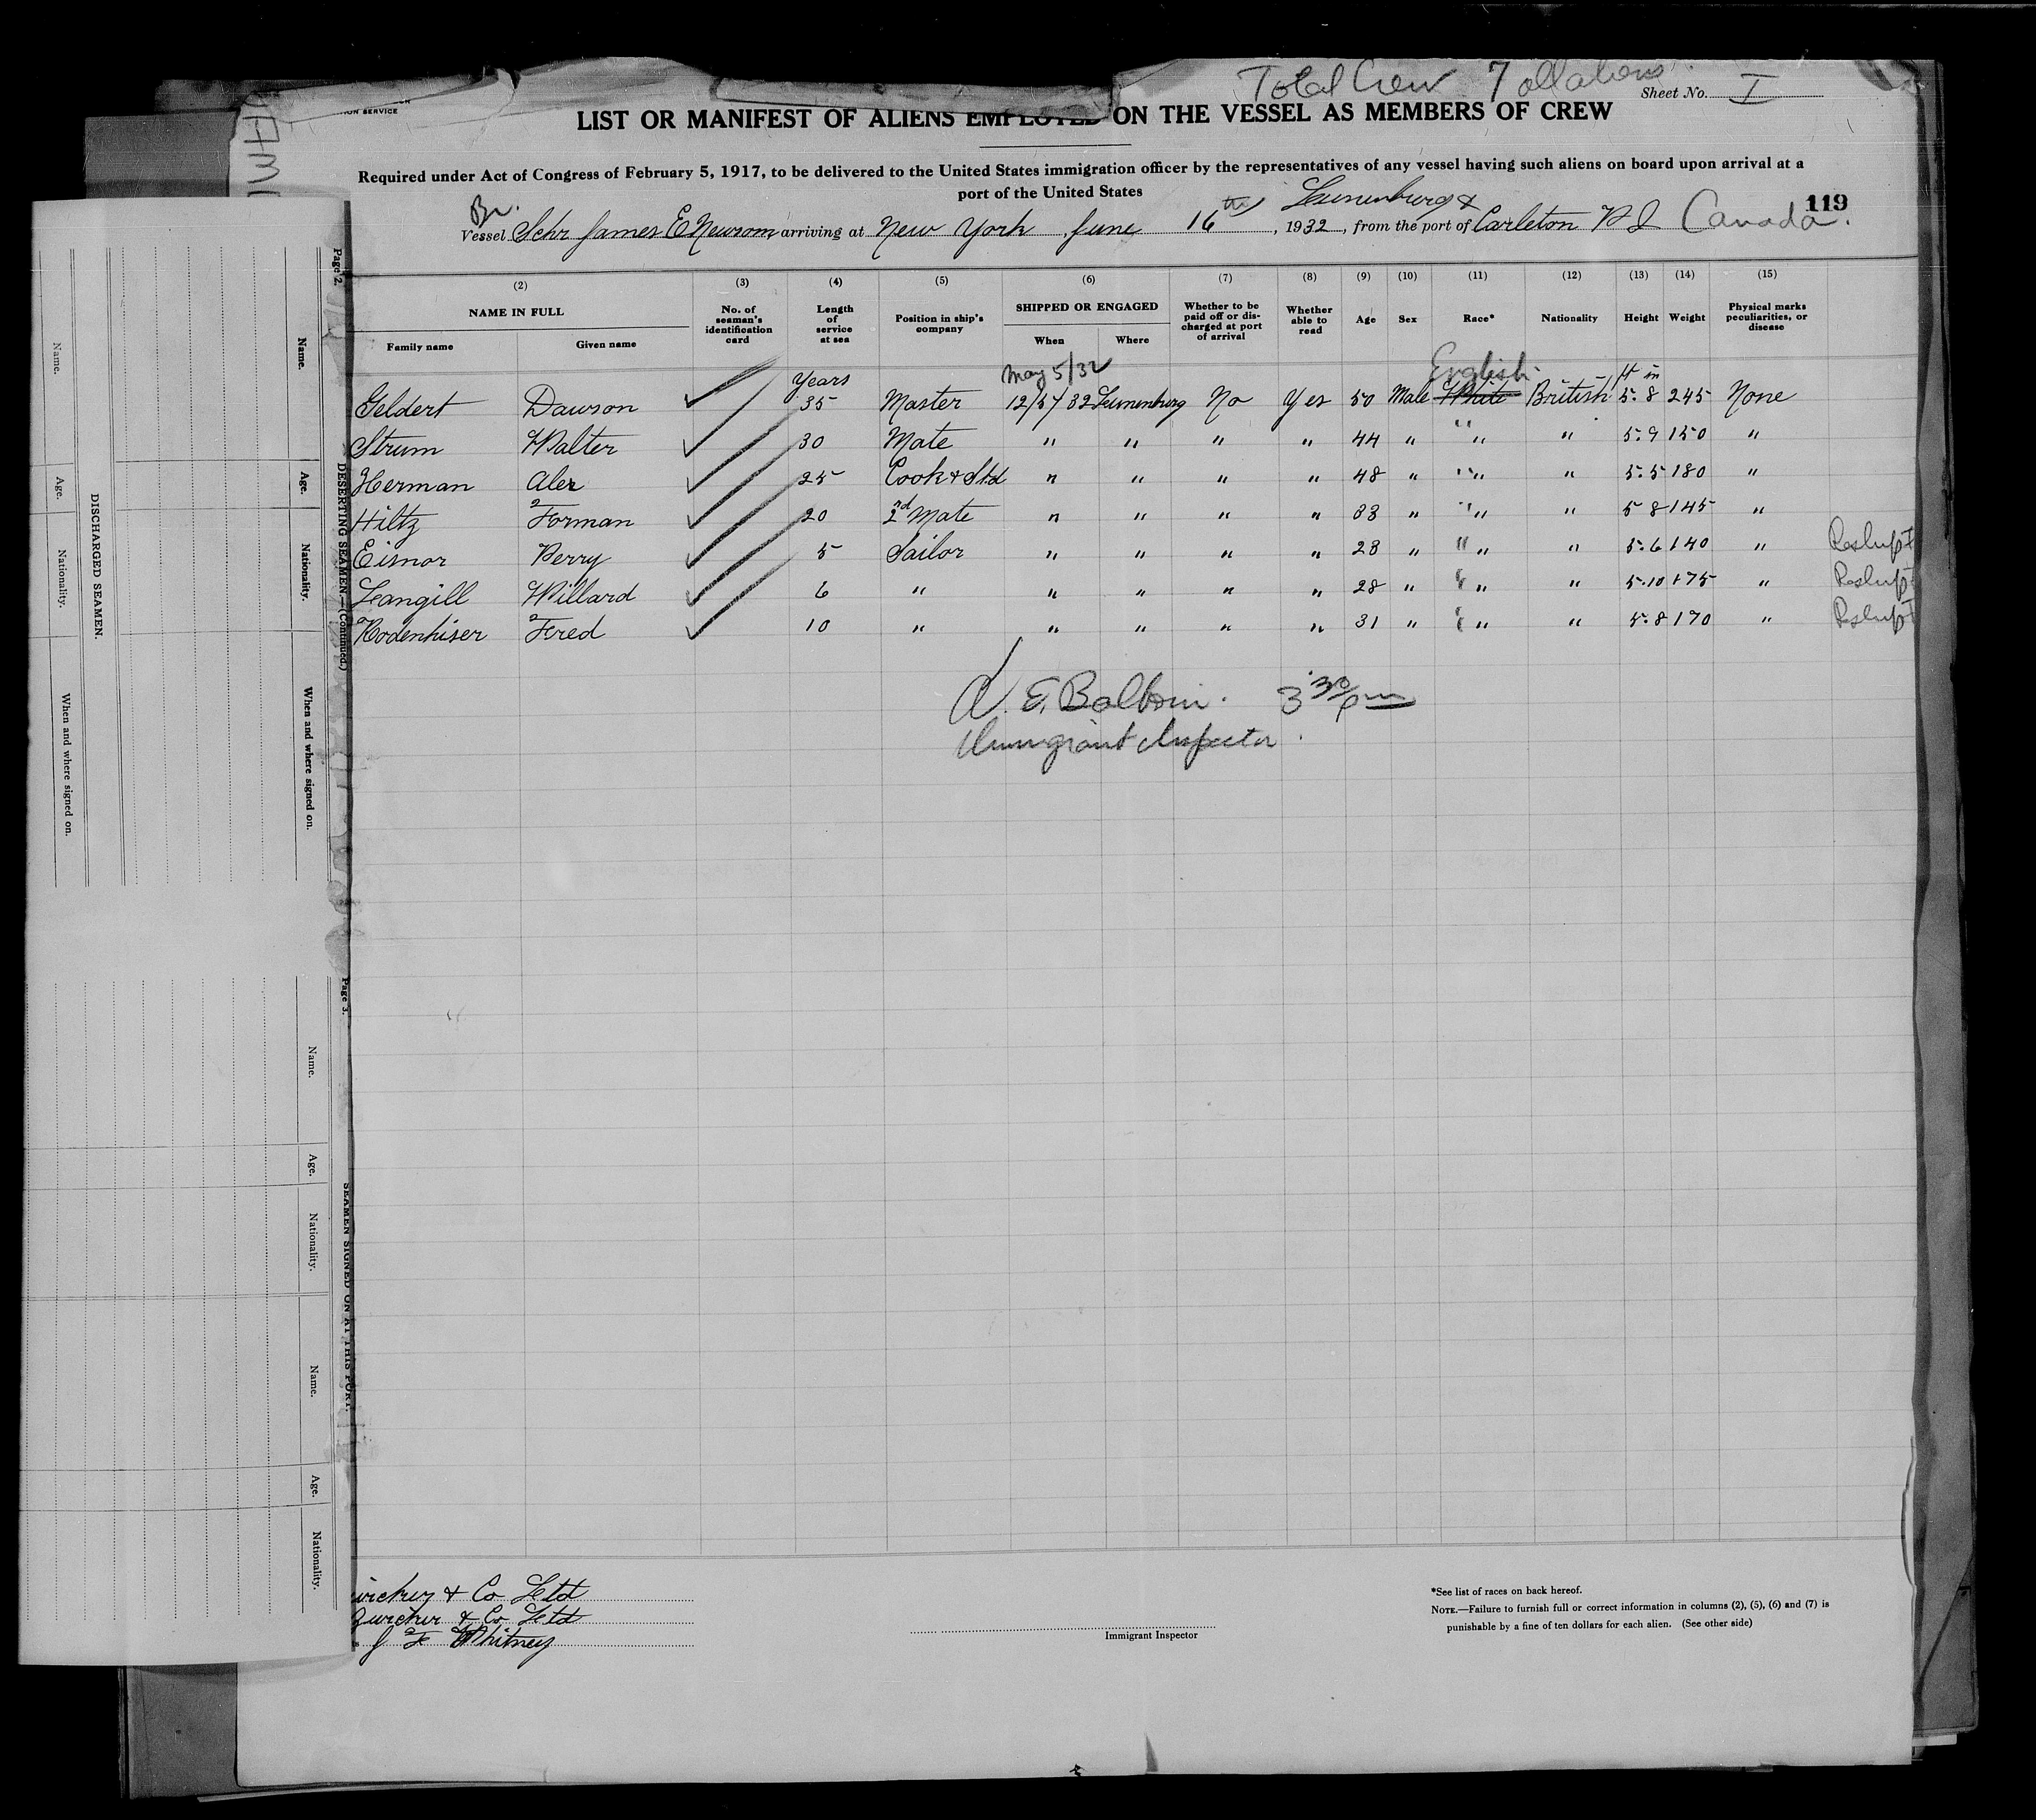 Total Crew 7 all aliens.
Sheet No. I
ION SERVICE
LIST OR MANIFEST OF ALIENS EMPLOYED ON THE VESSEL AS MEMBERS OF CREW
Required under Act of Congress of February 5, 1917, to be delivered to the United States immigration officer by the representatives of any vessel having such aliens on board upon arrival at a
port of the United States
119
Br. Lunenburg &
Vessel Schr James E Newsom arriving at New York, June 16th, 1932, from the port of Carleton P I Canada.
(2) (3) (4) (5) (6) (7) (8) (9) (10) (11) (12) (13) (14) (15)
NAME IN FULL No. of seaman's identification card Length of service at sea Position in ship's company SHIPPED OR ENGAGED Whether to be paid off or discharged at port of arrival Whether able to read Age Sex Race* Nationality Height Weight Physical marks peculiarities, or disease
Family name Given name When Where
Years May 5/32 English ft in
Geldert Dawson 35 Master 12/5/32 Lunenburg No Yes 50 Male White British 5.8 245 None
Strum Walter 30 Mate " " " " 44 " " " 5.9 150 "
Herman Alex 25 Cook & Std " " " " 48 " " " 5.5 180 "
Hiltz Forman 20 2nd Mate " " " " 33 " " " 5 8 145 "
Eisnor Perry 5 Sailor " " " " 28 " " " 5.6 140 " Reship I
Langill Willard 6 " " " " " 28 " " " 5.10 175 " Reship I
Rodenhiser Fred 10 " " " " " 31 " " " 5.8 170 " Reship I
3 30 pm
Immigrant Inspector.
& Co Ltd
Zurcher & Co Ltd
J F Whitney
Immigrant Inspector
*See list of races on back hereof.
NOTE.—Failure to furnish full or correct information in columns (2), (5), (6) and (7) is
punishable by a fine of ten dollars for each alien. (See other side)
Page 2.
DESERTING SEAMEN—(Continued.)
Name. Age. Nationality. When and where signed on.
DISCHARGED SEAMEN.
Name. Age. Nationality. When and where signed on.
Page 3.
SEAMEN SIGNED ON AT THIS PORT.
Name. Age. Nationality. Name. Age. Nationality.